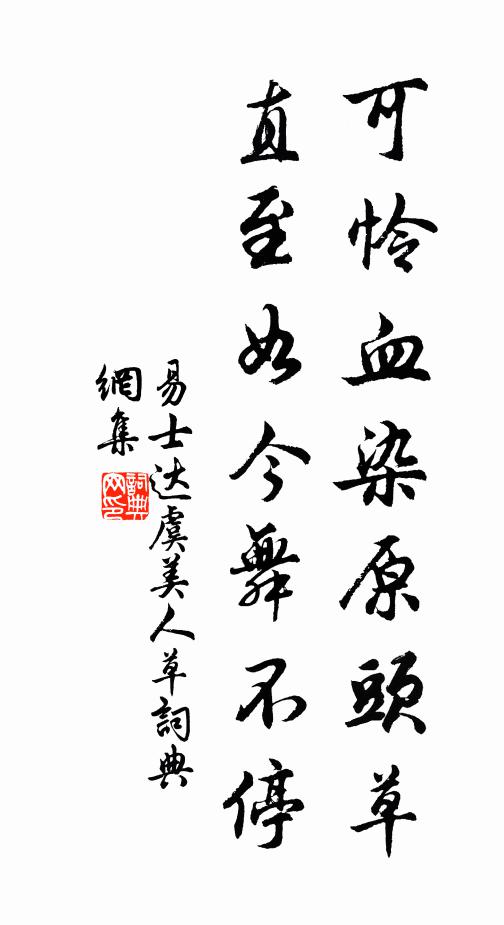 可怜血染原頭草
直至如今舞不停
易士达虞美人草詞典
網集
詞典网印